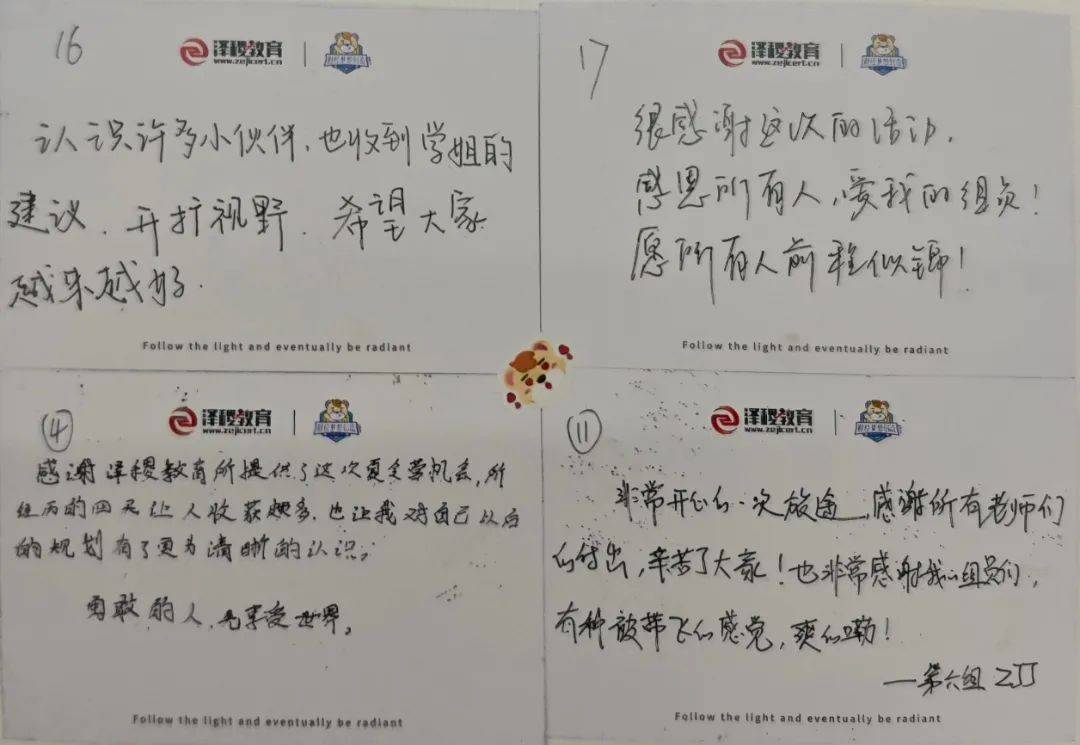 16
泽稷教育
www.zejicert.cn
财经梦想制造
认识许多小伙伴、也收到学姐的
建议、开扩视野、希望大家
越来越好.
Follow the light and eventually be radiant
17
泽稷教育
www.zejicert.cn
财经梦想制造
很感谢这次的活动,
感恩所有人,爱我的组员!
愿所有人前程似锦!
Follow the light and eventually be radiant
14
泽稷教育
www.zejicert.cn
财经梦想制造
感谢泽稷教育所提供了这次夏令营机会,所
经历的四天让人收获颇多,也让我对自己以后
的规划有了更为清晰的认识。
勇敢的人,先享受世界。
Follow the light and eventually be radiant
11
泽稷教育
www.zejicert.cn
财经梦想制造
非常开心的一次旅途,感谢所有老师们
的付出,辛苦了大家!也非常感谢我的组员们,
有种被带飞的感觉,爽的嘞!
—第六组 ZJJ
Follow the light and eventually be radiant